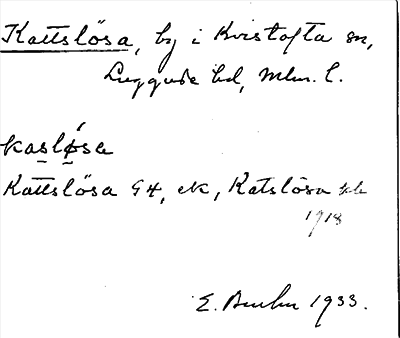 Kattslösa, by i Kvistofta sn,
Luggude hd, Mlm. l.
kaslǿsa
Kattslösa G4, ek, Katslösa
1918
E. 1933.